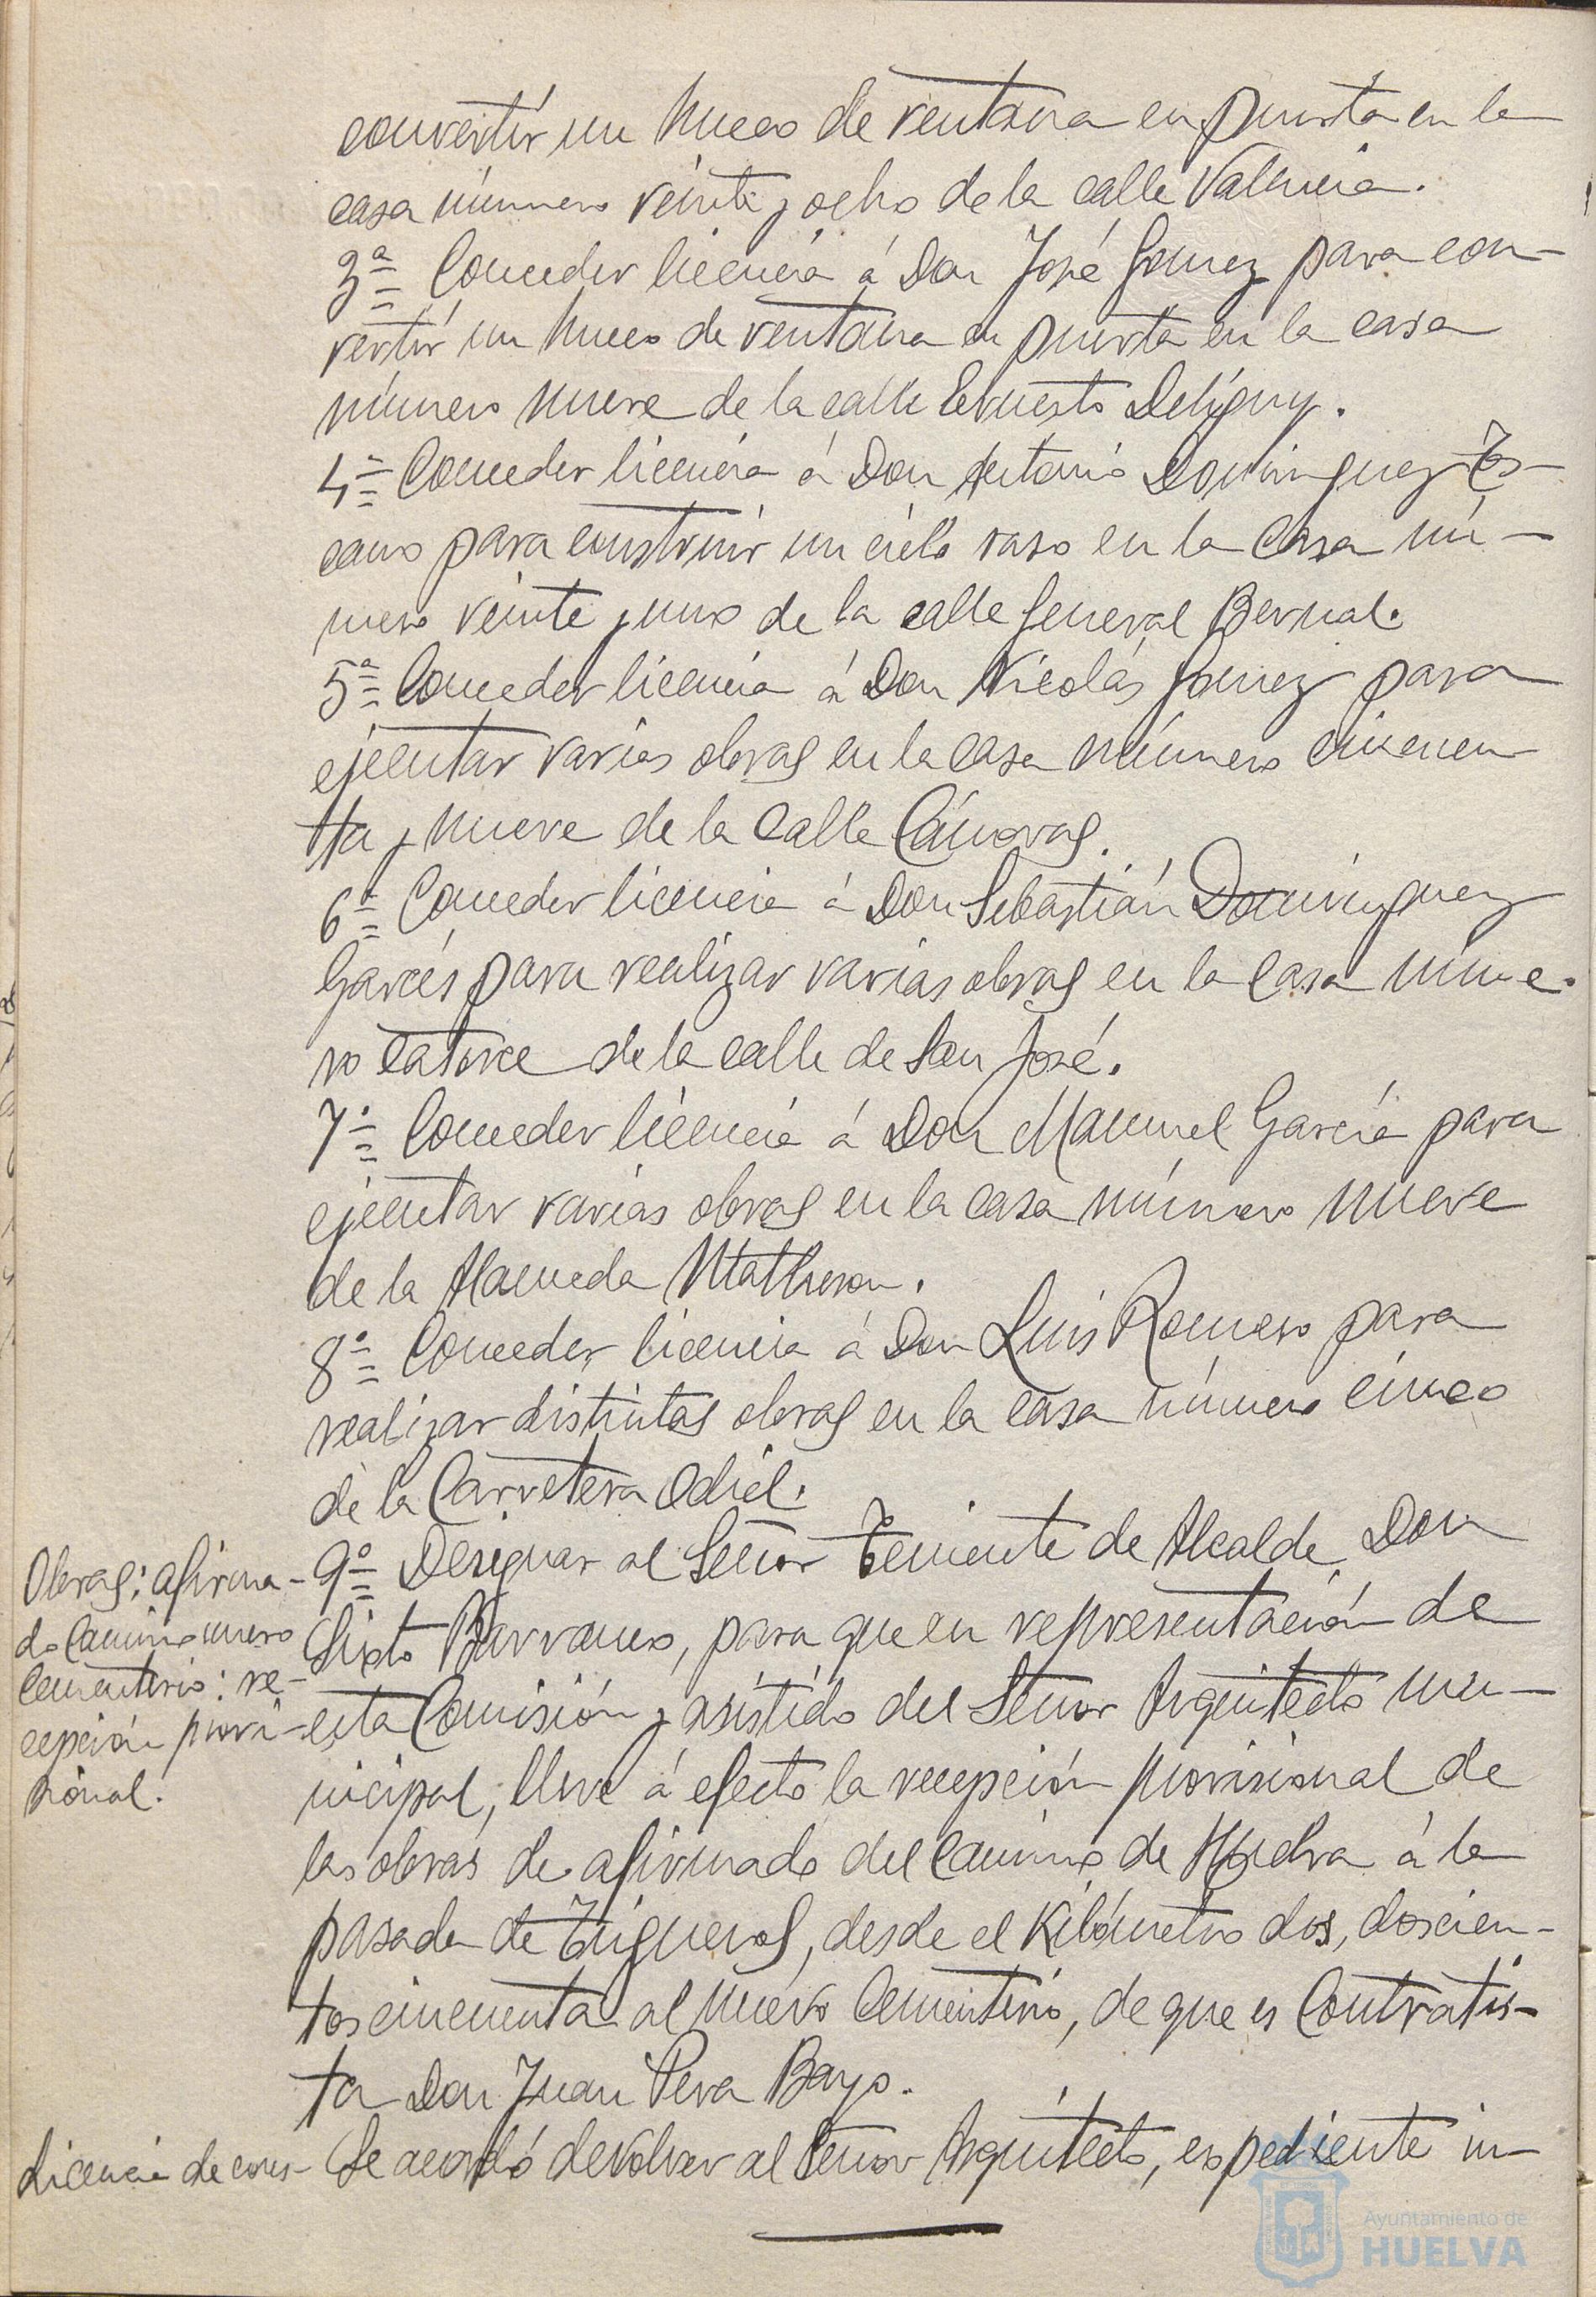 convertir un hueco de ventana en puerta en la
casa número veinte y ocho de la calle Valencia.
3ª Conceder licencia á Don José Gomez para con-
vertir un hueco de ventana en puerta en la casa
número nueve de la calle Ernesto Deligny.
4ª Conceder licencia á Don Antonio Dominguez Tos-
cano para construir un cielo raso en la casa nú-
mero veinte y uno de la calle General Bernal.
5ª Conceder licencia á Don Nicolás Gomez para
ejecutar varias obras en la casa número cincuen
ta y nueve de la calle Cánovas.
6ª Conceder licencia á Don Sebastián Dominguez
Garcés para realizar varias obras en la casa núme-
ro catorce de la calle de San José.
7º Conceder licencia á Don Manuel García para
ejecutar varias obras en la casa número nueve
de la Alameda Matheson.
8º Conceder licencia á Don Luis Romero para
realizar distintas obras en la casa número cinco
de la Carretera Odiel.
Obras: afirma-
do Camino nuevo
Cementerio: re-
cepción provi-
sional.
9º Designar al Señor Teniente de Alcalde, Don
Sixto Barranco, para que en representación de
esta Comisión y asistido del Señor Arquitecto mu-
nicipal, lleve á efecto la recepción provisional de
las obras de afirmado del Camino de Huelva á la
pasada de Trigueros, desde el Kilómetro dos, doscien-
tos cincuenta al nuevo Cementerio, de que es Contratis-
ta Don Juan Peva Bayo.
Licencia de cons-
Se acordó devolver al Señor Arquitecto, expediente in-
Ayuntamiento de
HUELVA